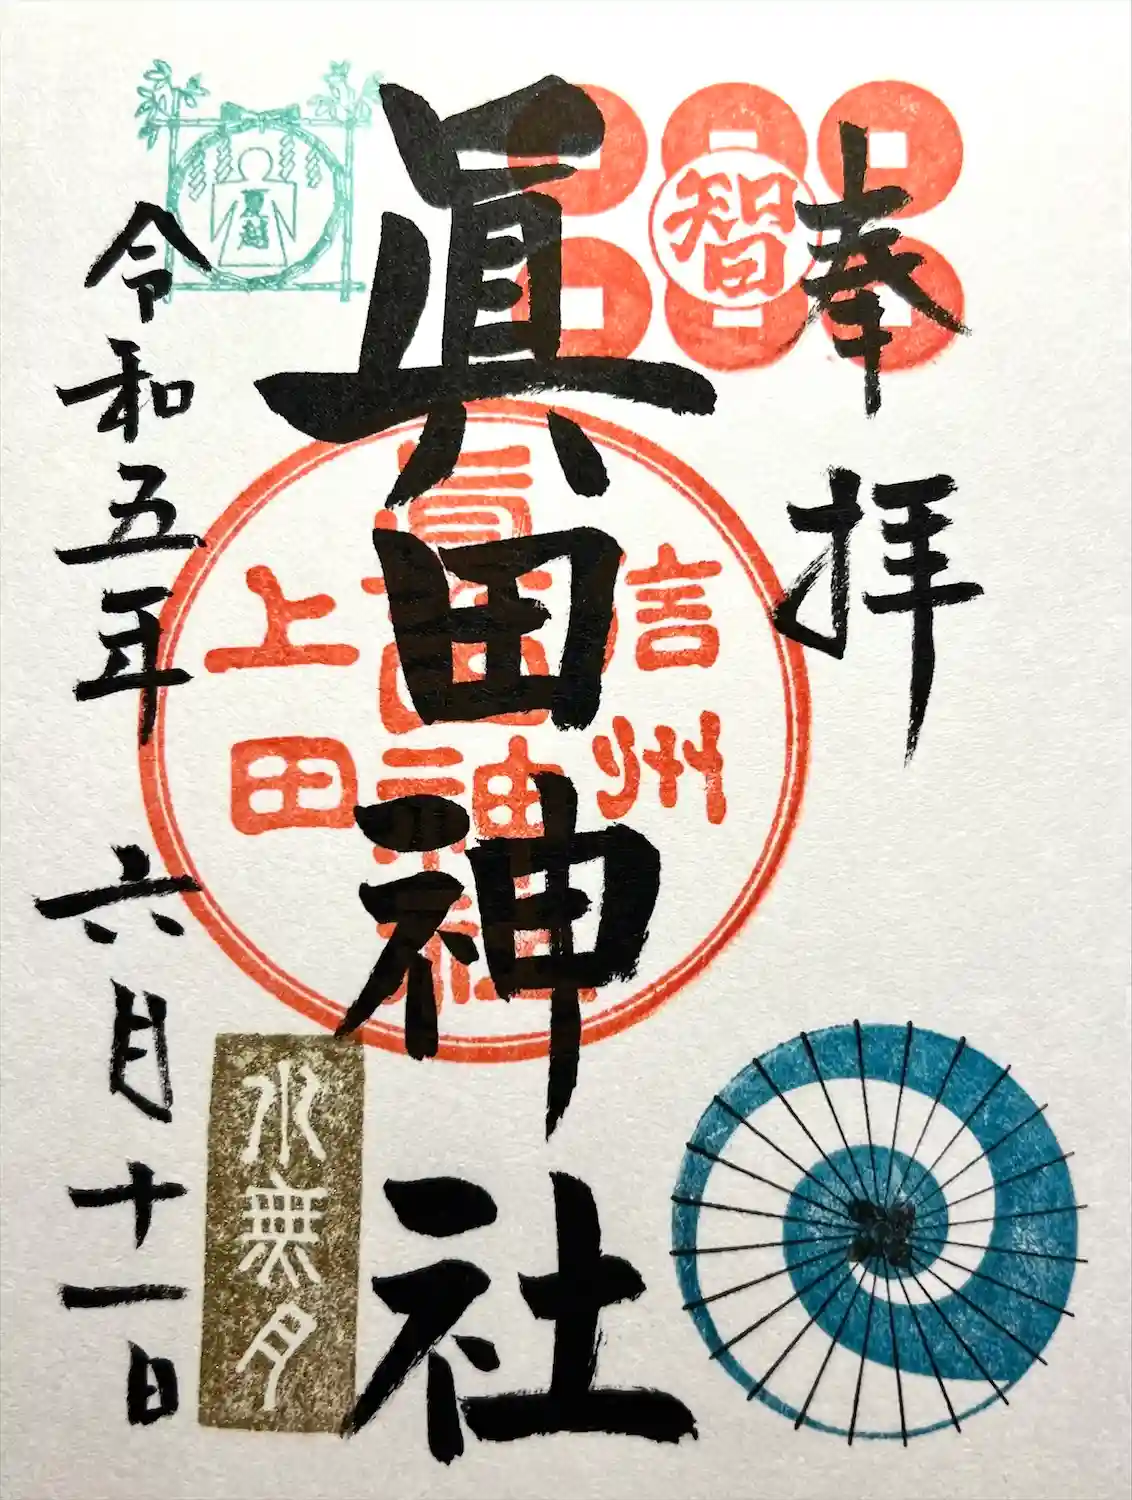 奉拝
智
眞田神社
信州
眞田神社
上田
夏越
水無月
令和五年 六月十一日